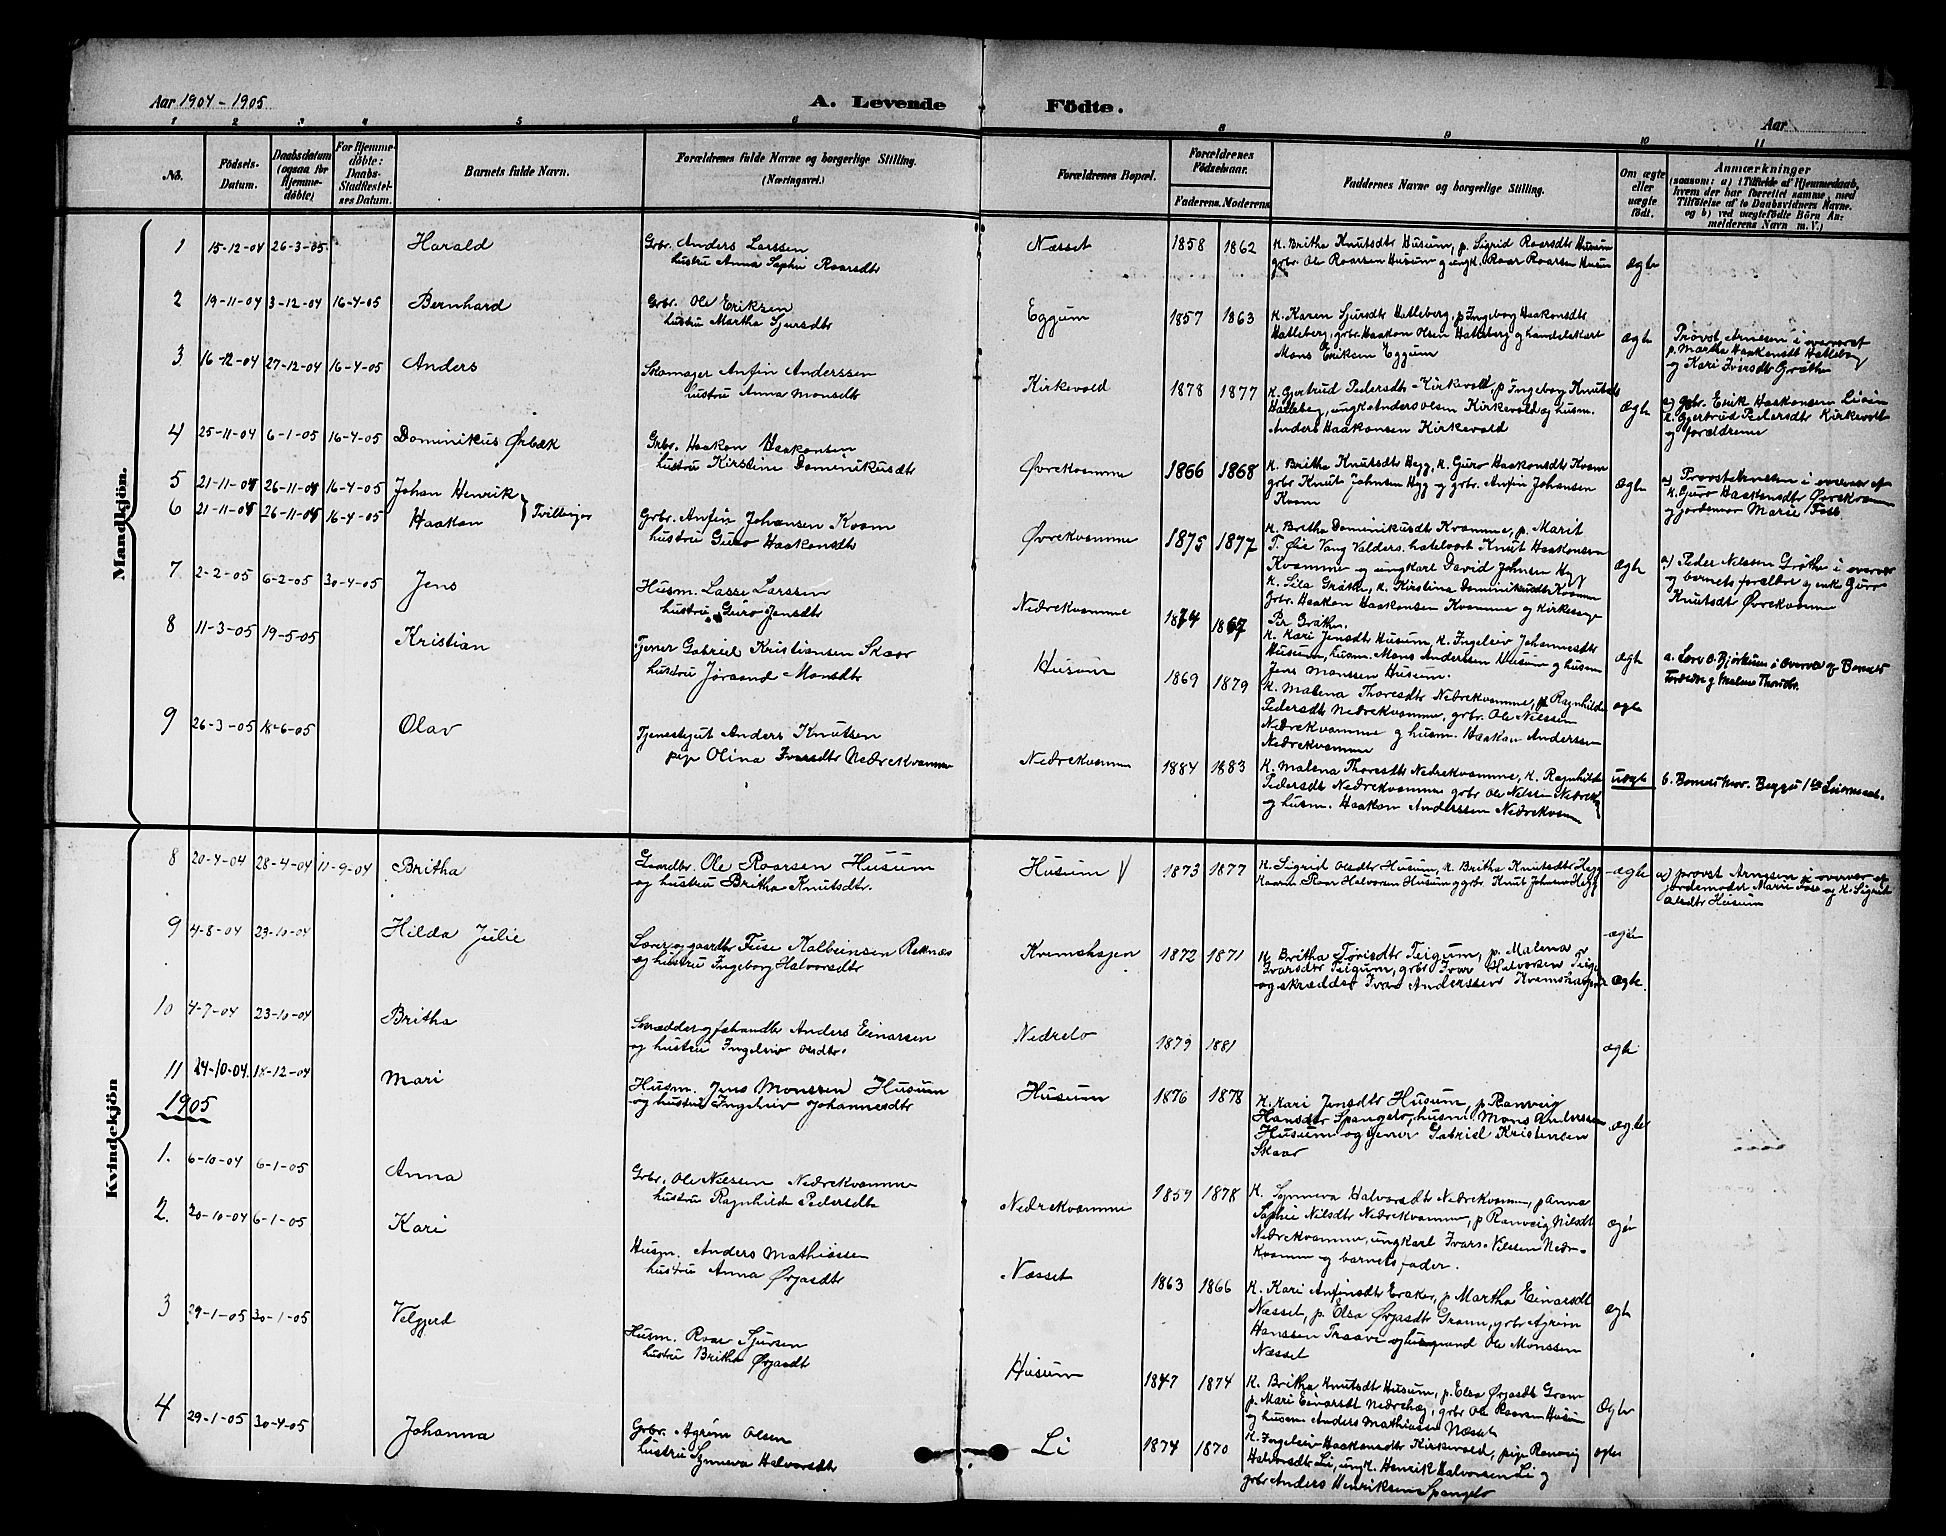 Aar 1904-1905
A. Levende Födte.
Aar
1 2 3 4 5 6 8 9 10 11
No.
Födsels-Datum.
Daabsdatum (ogsaa for Hjemmedöbte)
For Hjemmedöbte: Daabs-Stadfestelses Datum.
Barnets fulde Navn.
Forældrenes fulde Navne og borgerlige Stilling. (Næringsvei.)
Forældrenes Bopæl.
Forældrenes Födselsaar.
Faderens. Moderens.
Faddernes Navne og borgerlige Stilling.
Om ægte eller uægte födt.
Anmærkninger
(saasom: a) i Tilfælde af Hjemmedaab, hvem der har forrettet samme, med Tilföielse af to Daabsvidners Navne, og b) ved uægtefödte Börn Anmelderens Navn m. V.)
Mandkjön.
1 15-12-04 26-3-05 Harald
Grbr. Anders Larssen
hustru Anna Sophie Roarsdtr
Næsset 1858 1862
K. Britha Knutsdtr Husum, p. Sigrid Roarsdtr Husum
grbr. Ole Roarsen Husum og ungk. Roar Roarsen Husum
ægte
2 19-11-04 3-12-04 16-4-05 Bernhard
Grbr. Ole Eriksen
hustru Martha Sjursdtr
Eggum 1857 1863
K. Karen Sjursdtr Hatleberg, p Ingeborg Haakonsdtr
Hatleberg, grbr. Haakon Olsen Hatleberg og handelskart
Mons Eriksen Eggum
ægte
Provst Arnesen i overvær af
p. Martha Haakensdt Hatleberg
og Kari Iversdtr Gröthe
3 16-12-04 27-12-04 16-4-05 Anders
Skomager Anfin Anderssen
hustru Anna Monsdtr
Kirkevold 1878 1877
K. Gjertrud Pedersdtr Kirkevold, p Ingeborg Knutsdtr
Hatleberg, ungk Anders Olsen Kirkevold og husm.
Anders Haakonsen Kirkevold
ægte
a) grbr. Erik Haakonsen
K. Gjertrud Pedersdtr Kirkevold
og forældrene
4 25-11-04 6-1-05 16-4-05 Dominikus Ørbæk
Grbr. Haakon Haakonsen
hustru Kirstine Dominikusdtr
Øvrekvamme 1866 1868
K. Britha Knutsdtr Hegg, K. Guro Haakonsdtr Kvam
grbr Knut Johnsen Hegg og grbr. Anfin Johansen
Kvam
ægte
a) Provst Arnesen i overvær af
K. Guro Haakensdtr Øvrekvam
og jordemor Marie Foss
5 21-11-04 26-11-04 16-4-05 Johan Henrik
6 21-11-04 26-11-04 16-4-05 Haakon } Tvillinger
Grbr. Anfin Johansen Kvam
hustru Guro Haakonsdtr
Øvrekvamme 1875 1877
K. Britha Dominikusdtr Kvamme, p. Marit
T. Øie Vang Valders. hotelvært Knut Haakonsen
Kvamme og ungkarl David Johnsen Hegg
ægte
a) Peder Nilssen Gröthe i overvær
og barnets forældre og enke Guro
Knutsdt Øvrekvamme
7 2-2-05 6-2-05 30-4-05 Jens
Husm. Lasse Larssen
hustru Guro Jensdtr
Nedrekvamme 1874 1867
K. Sila Gröthe, K. Kirstina Dominikusdtr Kvamm
grbr. Haakon Haakonsen Kvamme og kirkesanger
Pr Gröthe.
ægte
8 11-3-05 19-5-05 Kristian
Tjener Gabriel Kristiansen Skaar
hustru Jørand Monsdtr
Husum 1869 1879
K. Kari Jensdtr Husum, K. Ingeleiv Johannesdtr
Husum, husm. Mons Anderssen Husum og husm
Jens Monssen Husum.
ægte
9 26-3-05 18-6-05 Olav
Tjenestegut Anders Knutsen
pige Olina Ivarsdtr Nedrekvamme
Nedrekvamm 1884 1883
K. Malena Thoresdtr Nedrekvamme, p Ragnhilda
Pedersdtr Nedrekvamme, grbr. Ole Nilssen
Nedrekvamme og husm. Haakon Anderssen
Nedrekvamme
K. Malena Thoresdtr Nedrekvamme, K. Ragnhilda
Pedersdt Nedrekvamme grbr Ole Nilsen Nedrek
og husm. Haakon Anderssen Nedrekvam
uægte
Kvindekjön
8 20-4-04 28-4-04 11-9-04 Britha
Gaardbr. Ole Roarsen Husum
og hustru Britha Knutsdtr.
Husum V 1873 1877
K. Sigrid Olsdtr Husum, K. Britha Knutsdtr Hegg
Kaarm Roar Halvorsen Husum og grbr. Knut Johnsen Hegg
ægte
a) provst Arnesen i overvær af
jordemoder Marie Foss og K. Sigrid
Olsdtr Husum
9 4-8-04 23-10-04 Hilda Julie
Lærer og gaardbr Fuse Kolbeinsen Reknæs
og hustru Ingeborg Halvorsdtr
Kvemshagen 1872 1871
ægte
K. Britha Torisdtr Teigum, p. Malena
Ivarsdtr Teigum, grbr Ivar Halvorsen Teigum
og skrædder Ivar Anderssen Kvemshagen
ægte
10 4-7-04 23-10-04 Britha
Skrædder og fæhandler Anders Einarssen
og hustru Ingeleiv Olsdtr.
Nedrelo 1879 1881
ægte
11 24-10-04 18-12-04 Mari
Husm. Jens Monssen Husum
og hustru Ingeleiv Johannesdtr
Husum 1876 1878
K. Kari Jensdtr Husum, p Ranveig
Hansdtr Spangelo, husm. Mons Anderssen
Husum og tjener Gabriel Kristensen
Skaar
ægte
1905
1. 6-10-04 6-1-05 Anna
Grbr. Ole Nilssen Nedrekvamme
hustru Ragnhilde Pedersdtr
Nedrekvamme 1859 1878
K. Synneva Halvorsdtr Nedrekvamme, p Anna
Sophie Nilsdtr Nedrekvamme, p Ranveig Nilsdt
Nedrekvamme, ungkarl Ivars Nilssen Nedre-
kvamm og barnets fader.
ægte
2. 20-10-04 6-1-05 Kari
Husm. Anders Mathiassen
hustru Anna Ørjasdtr
Næsset 1863 1866
K. Kari Anfinsdtr Eraker, p Martha Einarsdt
Næsset, p. Elsa Ørjasdtr Gram, grbr Agrim
Hanssen Traave og husmand Ole Monssen
Næsset
ægte
3 29-1-05 30-1-05 Velgjerd
Husm. Roar Sjursen
hustru Britha Ørjasdt
Husum 1847 1874
K. Britha Knutsdtr Husum, p. Elsa Ørjasdt Gram
p. Mari Eivarsdt Nedrehæg, grbr Ole Roarsen Husum
og husm Anders Mathiassen Næset
Ægte
4 29-1-05 30-4-05 Johanna
Grbr. Agrim Olsen
hustru Synneva Halvorsdtr
Li 1874 1870
K. Ingeleiv Haakonsdtr Kirkevold, pige Ranveig
Halvorsdtr Li, ungk. Henrik Halvorsen Li og
grbr Anders Henriksen Spangelo
ægte